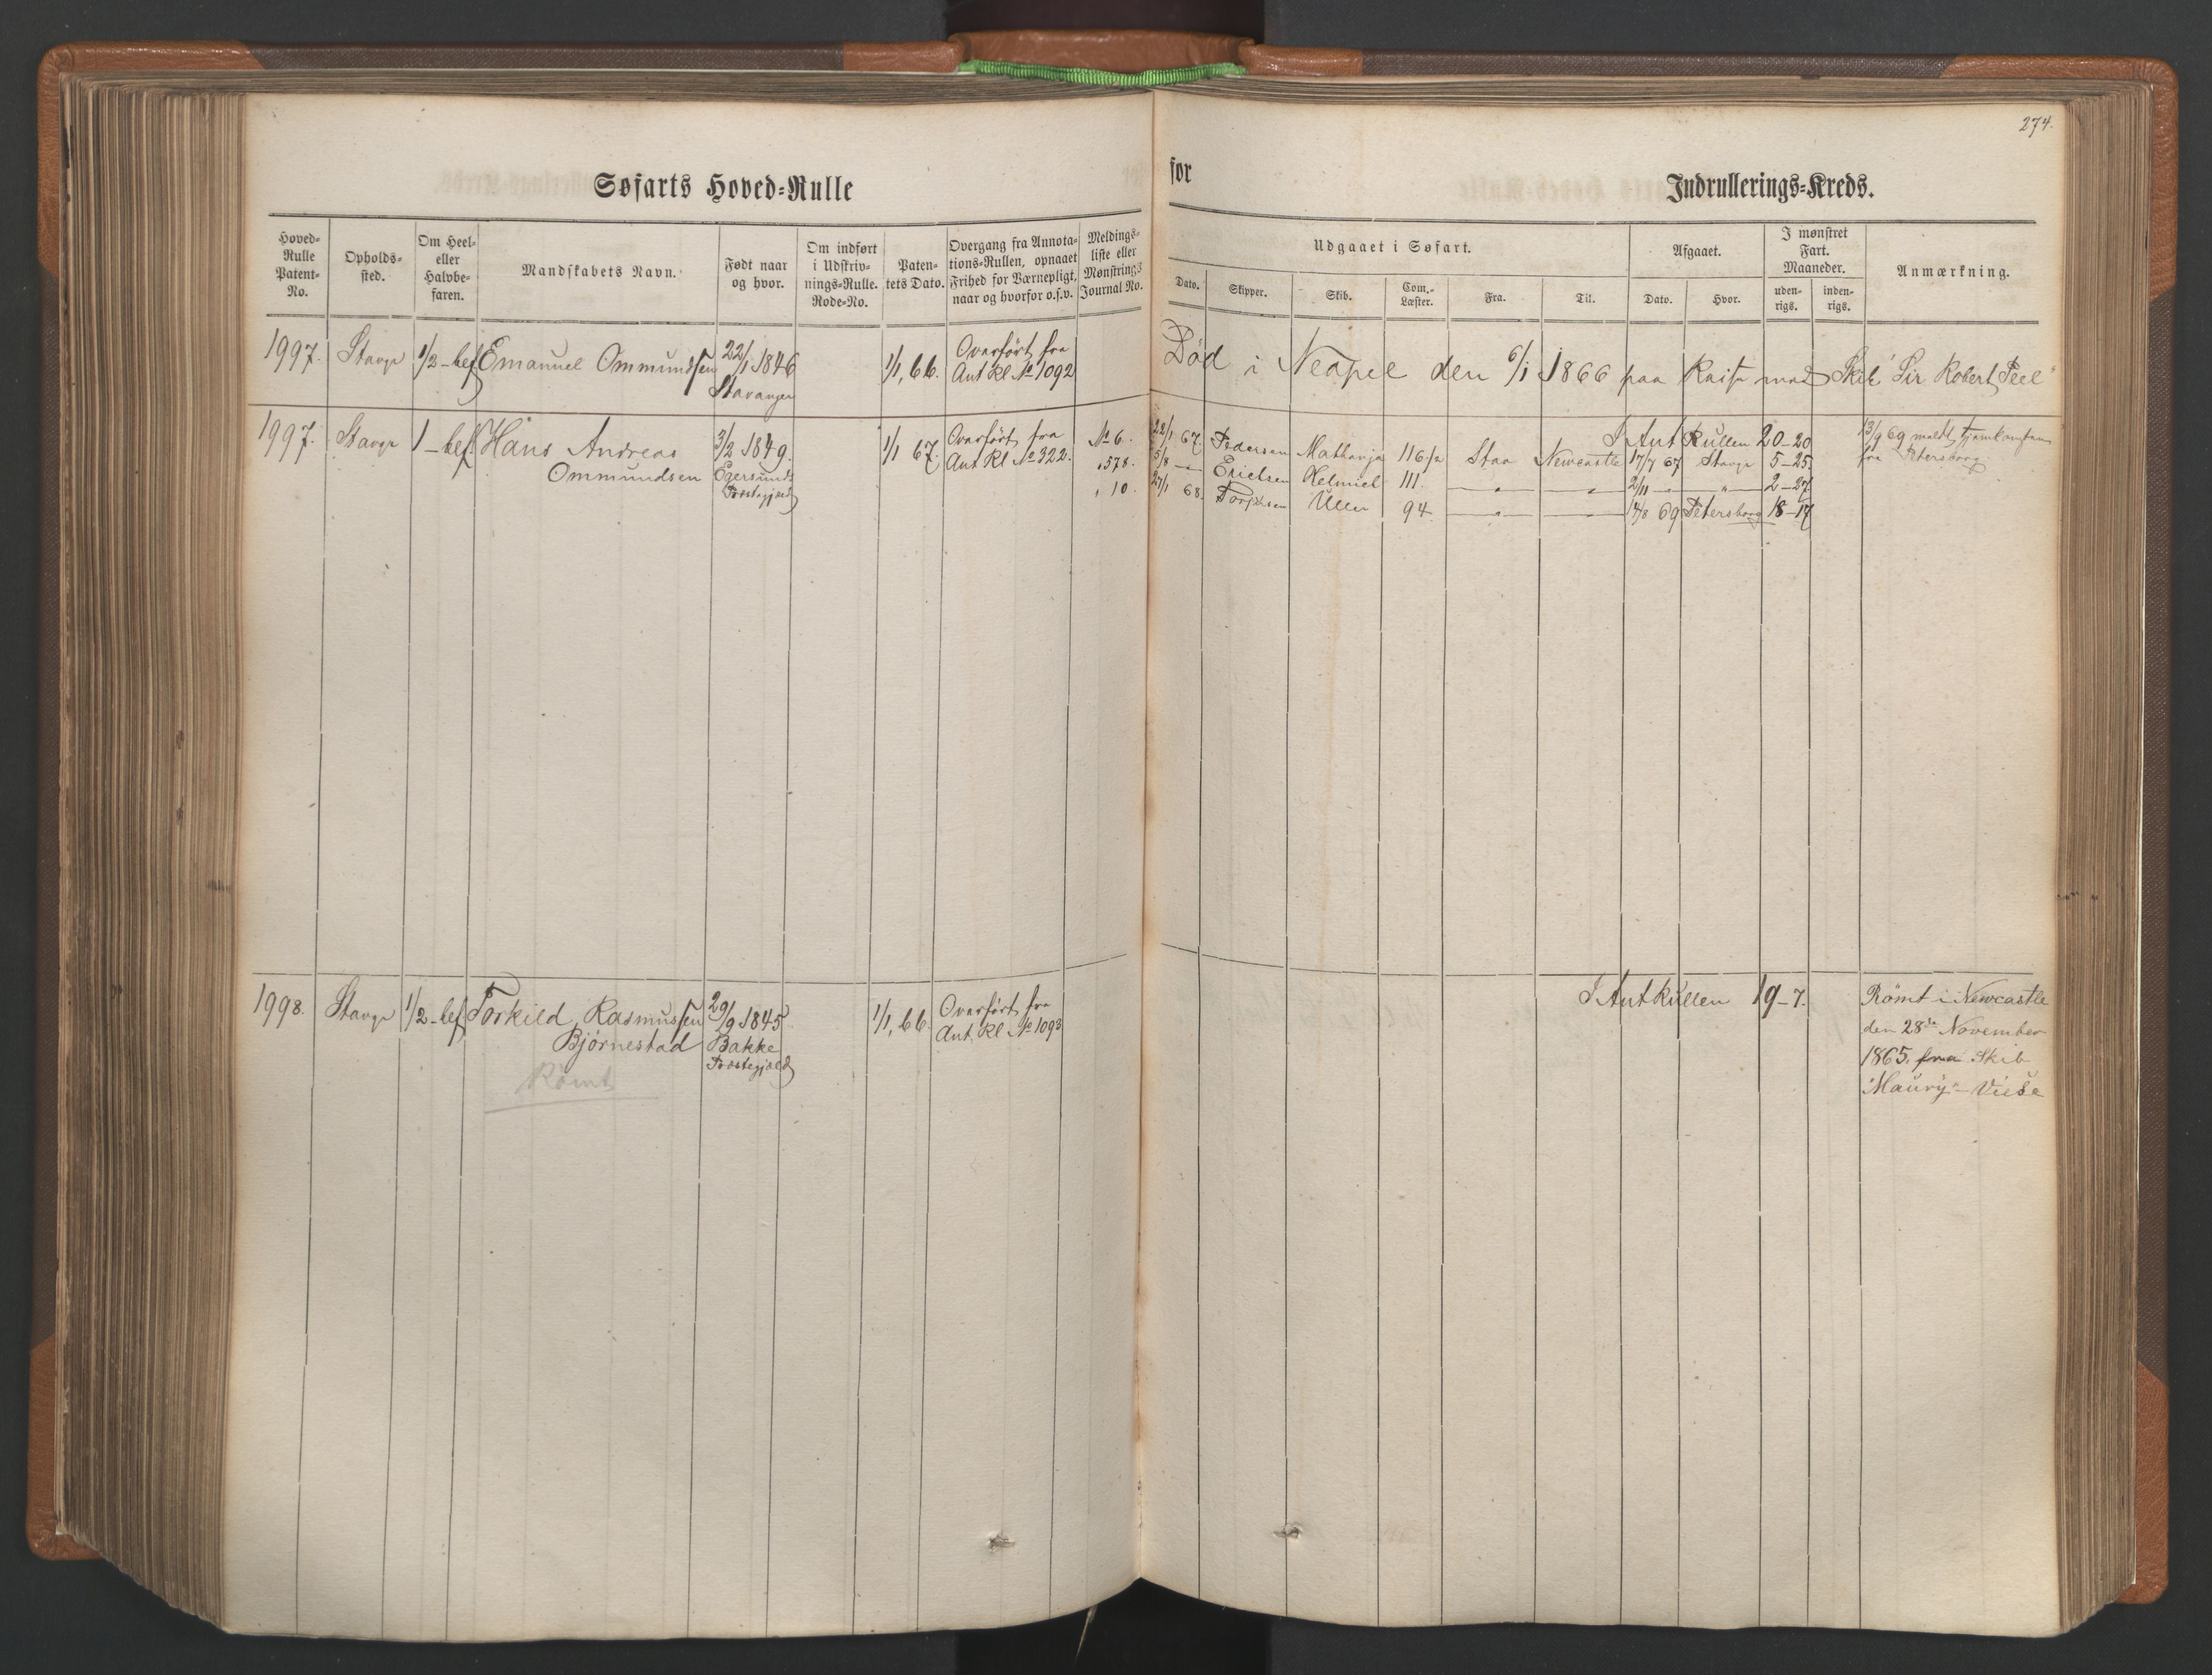 274.
Søfarts Hoved-Rulle
for
Indrullerings-Kreds.
Hoved-Rulle Patent-No.
Opholds-sted.
Om Heel- eller Halvbe-faren.
Mandskabets Navn.
Født naar og hvor.
Om indført i Udskriv-nings-Rulle. Rode-No.
Paten-tets Dato.
Overgang fra Annota-tions-Rullen, opnaaet Frihed for Værnepligt, naar og hvorfor o.s.v.
Meldings-liste eller Mønstrings Journal No.
Udgaaet i Søfart.
Dato.
Skipper.
Skib.
Com.-Læster.
Fra.
Til.
Afgaaet.
Dato.
Hvor.
I mønstret Fart. Maaneder.
uden-rigs.
inden-rigs.
Anmærkning.
1997. Stavgr 1/2-bef Emanuel Ommundsen 22/1 1846 1/1, 66. Overført fra
Stavanger Ant Rl No 1092
Død i Neapel den 6/1 1866 paa Reise med Skib "Sir Robert Peel"
1997. Stavgr 1-bef. Hans Andreas 3/2 1849. 1/1 67. Overført fra No 6.
Ommundsen Egersunds Ant Rl No 322. " 578.
Præstegjeld " 10.
I Ant Rullen 20-20
22/1 67. Pedersen 116 Sta Newcastle 17/7 67 Stavgr 5-25.
5/8 — Erielsen Helmich 111. — " — — " — 2/11 — " — 2-27
27/1 68. Ullen 94 — " — — " — 14/8 69 Petersborg 18-17
13/9 69 meldt hjemkommen
fra Petersborg
1998. Stavgr 1/2-bef Torkild Rasmussen 29/9 1845 1/1, 66. Overført fra
Bjørnestad Bakke Ant. Rl No 1093
Rømt Præstegjeld
I Ant Rullen 19-7.
Rømt i Newcastle
den 28de November
1865, fra Skib
"Maury" - Viese